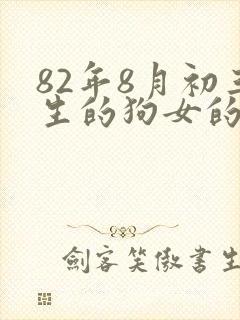 82年8月初三
生的狗女的
劍客笑傲書生